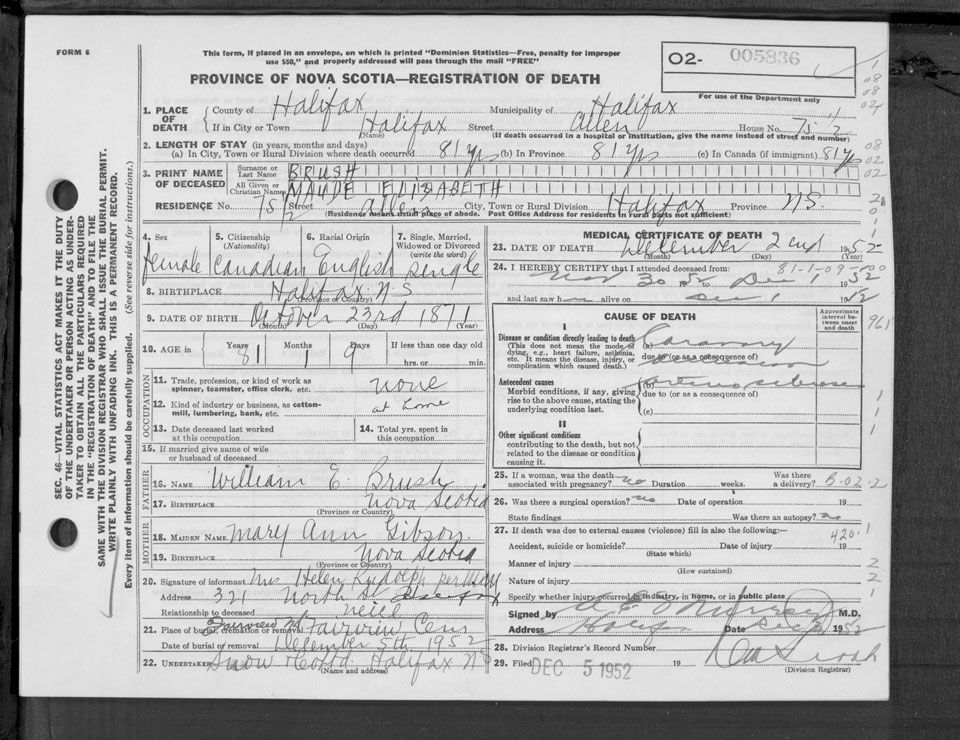 FORM 6
This form, if placed in an envelope, on which is printed "Dominion Statistics—Free, penalty for improper
use $50," and properly addressed will pass through the mail "FREE"
PROVINCE OF NOVA SCOTIA—REGISTRATION OF DEATH
O2- 005836
For use of the Department only
1. PLACE OF DEATH { County of Halifax Municipality of Halifax
If in City or Town Halifax Street Allen House No. 75 1/2
(Name) (If death occurred in a hospital or institution, give the name instead of street and number)
2. LENGTH OF STAY (in years, months and days)
(a) In City, Town or Rural Division where death occurred 81 yrs (b) In Province 81 yrs (c) In Canada (if immigrant) 81 yrs
3. PRINT NAME OF DECEASED { Surname or Last Name BRUSH
All Given or Christian Names MAUDE ELIZABETH
RESIDENCE No. 75 1/2 Street Allen City, Town or Rural Division Halifax Province N.S.
(Residence means usual place of abode. Post Office Address for residents in rural parts not sufficient)
4. Sex female
5. Citizenship (Nationality) Canadian
6. Racial Origin English
7. Single, Married, Widowed or Divorced (write the word) single
8. BIRTHPLACE Halifax N S
(Province or Country)
9. DATE OF BIRTH October 23rd 1871
(Month) (Day) (Year)
10. AGE in { Years 81 Months 1 Days 9 If less than one day
hrs. or min.
OCCUPATION
11. Trade, profession, or kind of work as spinner, teamster, office clerk, etc. none
12. Kind of industry or business, as cotton-mill, lumbering, bank, etc. at home
13. Date deceased last worked at this occupation
14. Total yrs. spent in this occupation
15. If married give name of wife or husband of deceased
FATHER
16. NAME William E. Brush
17. BIRTHPLACE Nova Scotia
(Province or Country)
MOTHER
18. MAIDEN NAME Mary Ann Gibson
19. BIRTHPLACE Nova Scotia
(Province or Country)
20. Signature of informant Mrs Helen Rudolph
Address 321 North St Halifax
Relationship to deceased neice
21. Place of burial, cremation or removal Fairview Cem
Date of burial or removal December 5th, 1952
22. UNDERTAKER Snow & Co Ltd. Halifax NS
(Name and address)
MEDICAL CERTIFICATE OF DEATH
23. DATE OF DEATH December 2nd 1952
(Month) (Day) (Year)
81-1-09-
24. I HEREBY CERTIFY that I attended deceased from:
Nov 30 52 to Dec 1 1952
and last saw h alive on Dec 1 1952
CAUSE OF DEATH
Approximate interval between onset and death
I
Disease or condition directly leading to death
(This does not mean the mode of dying, e.g., heart failure, asthenia, etc. It means the disease, injury, or complication which caused death.)
(a) Coronary
due to (or as a consequence of)
Antecedent causes
Morbid conditions, if any, giving rise to the above cause, stating the underlying condition last.
(b)
due to (or as a consequence of)
(c)
II
Other significant conditions
contributing to the death, but not related to the disease or condition causing it.
25. If a woman, was the death associated with pregnancy? no Duration weeks. Was there a delivery?
26. Was there a surgical operation? no Date of operation 19
State findings Was there an autopsy? no
27. If death was due to external causes (violence) fill in also the following: 420.1
Accident, suicide or homicide? Date of injury 19
(State which)
Manner of injury
(How sustained)
Nature of injury
Specify whether injury occurred in industry, in home, or in public place
Signed by M.D.
Address Halifax Date Dec 1952
28. Division Registrar's Record Number
29. Filed DEC 5 1952 19
(Division Registrar)
SEC. 46—VITAL STATISTICS ACT MAKES IT THE DUTY
OF THE UNDERTAKER OR PERSON ACTING AS UNDER-
TAKER TO OBTAIN ALL THE PARTICULARS REQUIRED
IN THE "REGISTRATION OF DEATH" AND TO FILE THE
SAME WITH THE DIVISION REGISTRAR WHO SHALL ISSUE THE BURIAL PERMIT.
WRITE PLAINLY WITH UNFADING INK. THIS IS A PERMANENT RECORD.
Every item of information should be carefully supplied. (See reverse side for instructions.)